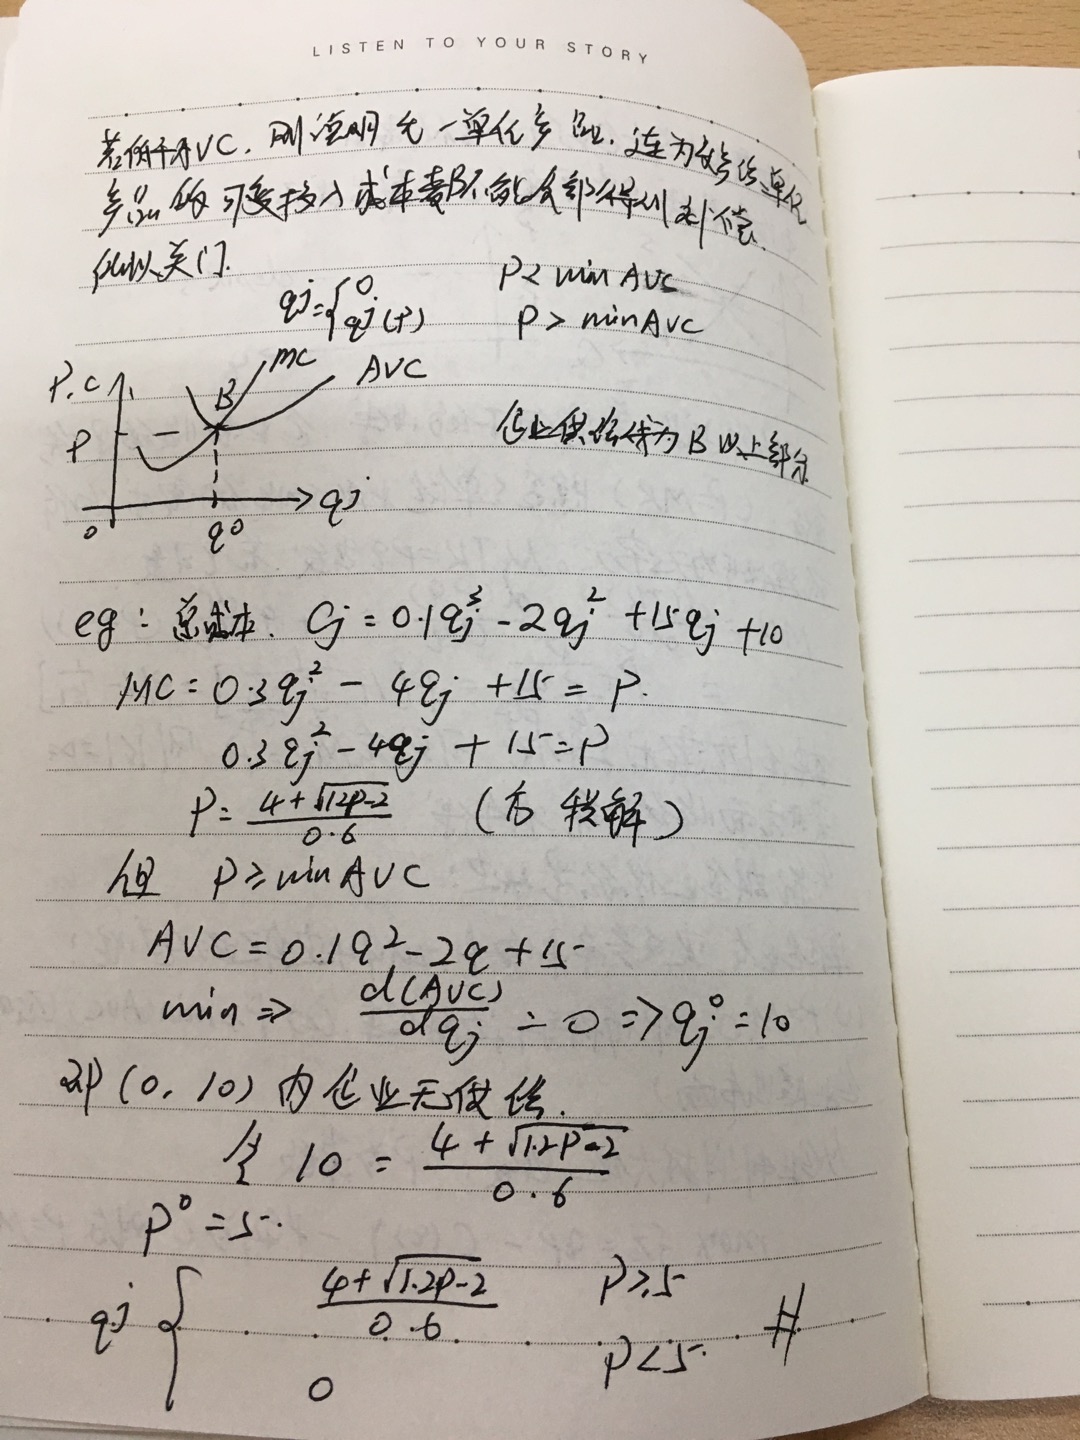 LISTEN TO YOUR STORY
若低于AVC，则说明允一单位产品，连为
产品的可变投入成本费都不能全部得到补偿.
所以关门.
qj={0 P<minAVC
qj(P) P>minAVC
P.C MC AVC
B
P 企业供给线为B以上部分
0 q⁰ qj
eg: 总成本. Cj=0.1qj³-2qj²+15qj+10
MC=0.3qj²-4qj+15=P.
0.3qj²-4qj+15=P
P=(4+√(1.2P-2))/0.6 (舍 解)
但 P≥minAVC
AVC=0.1q²-2q+15
min⇒ d(AVC)/dqj=0⇒qj⁰=10
即(0,10)内企业无供给.
令 10=(4+√(1.2P-2))/0.6
P⁰=5.
qj{ (4+√(1.2P-2))/0.6 P≥5 #
0 P<5.